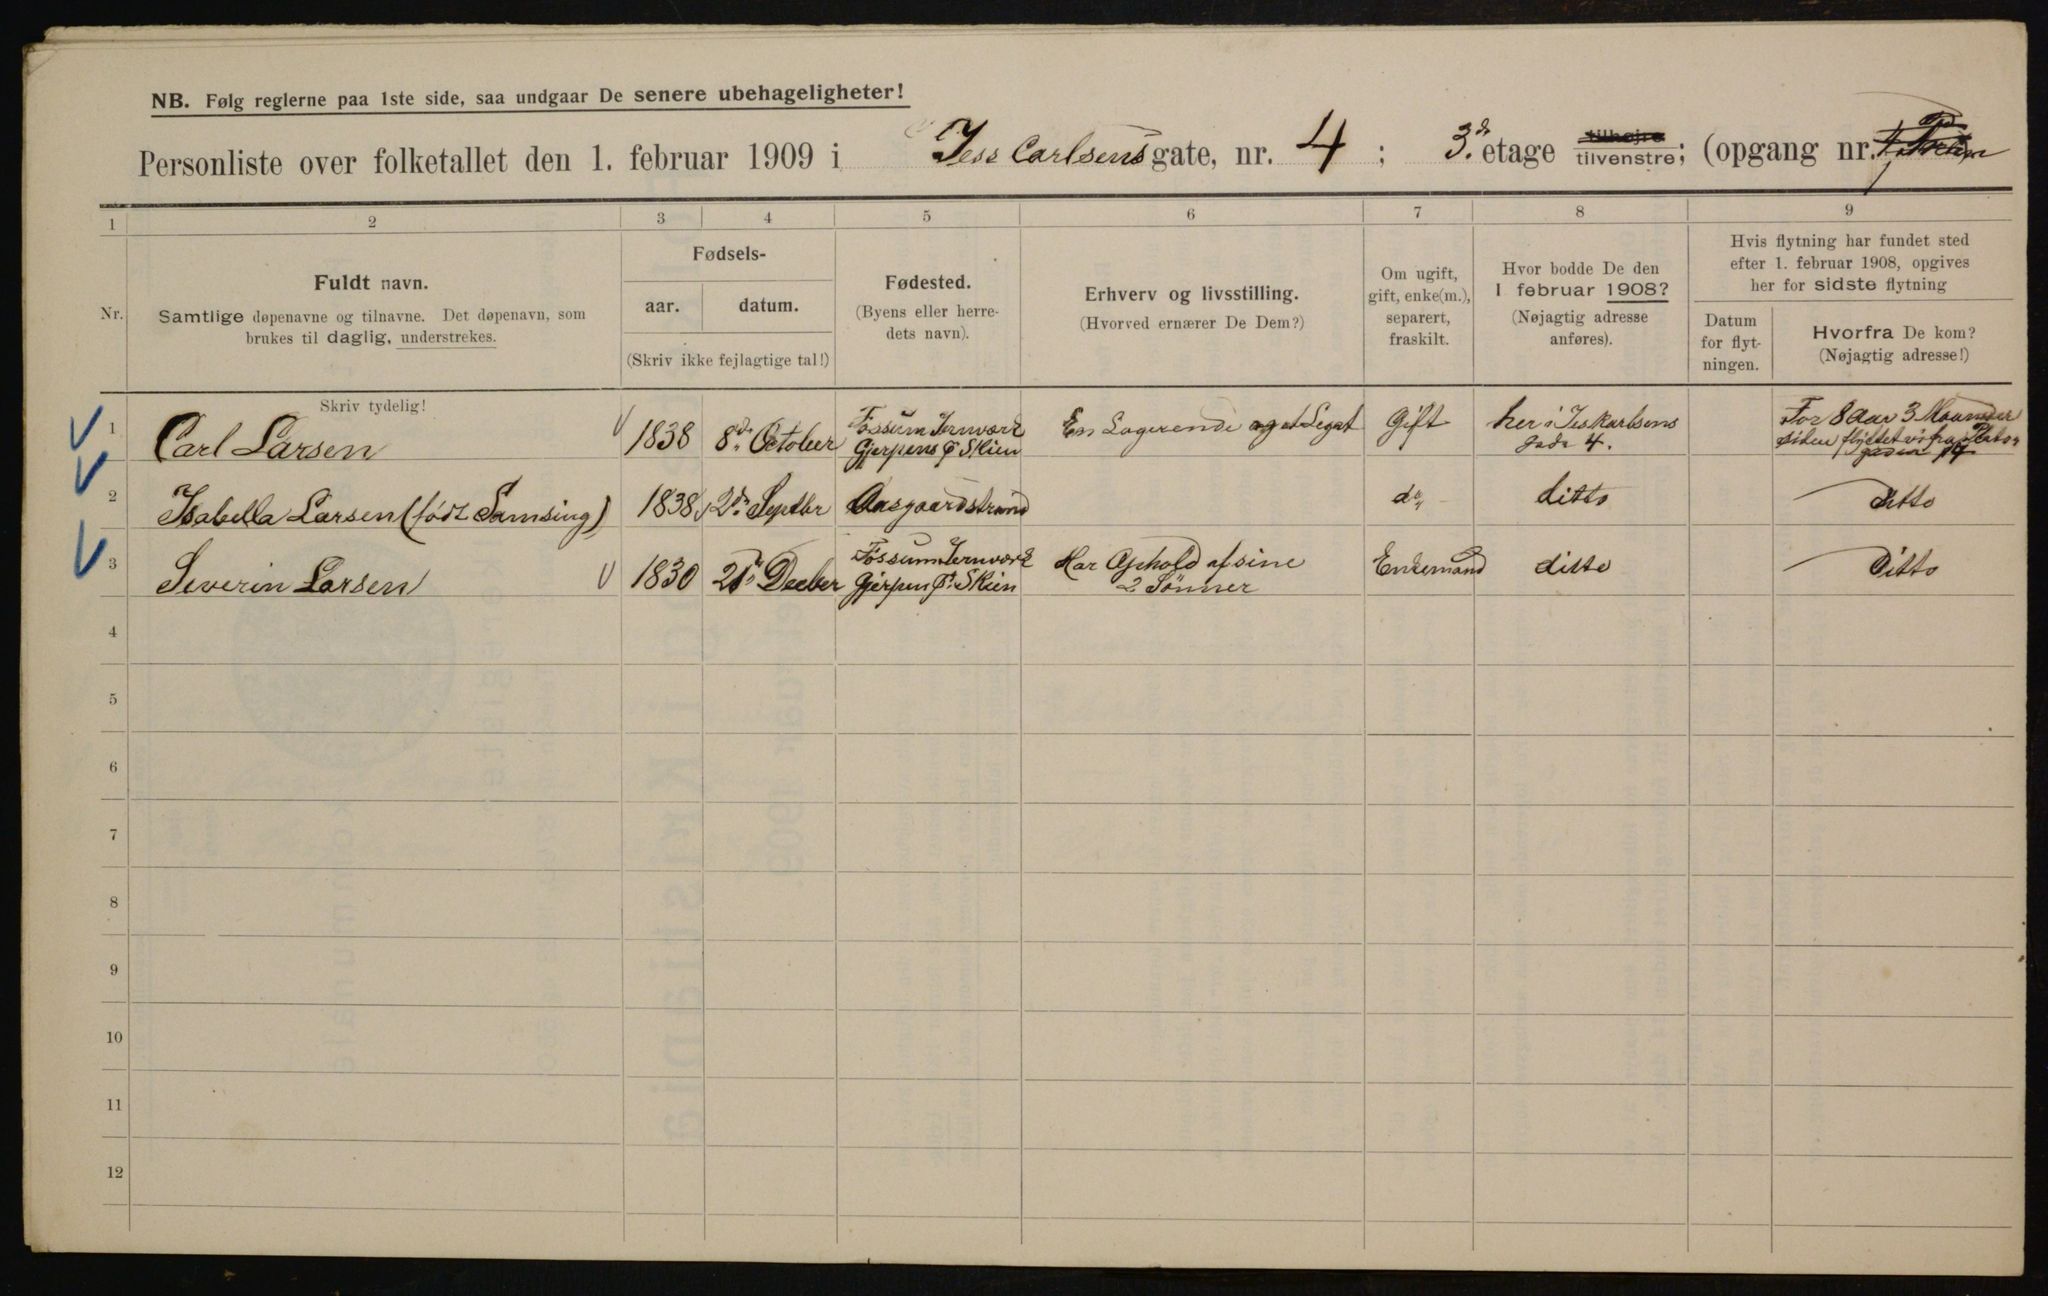 NB. Følg reglerne paa 1ste side, saa undgaar De senere ubehageligheter!
Personliste over folketallet den 1. februar 1909 i Jess Carlsens gate, nr. 4 ; 3. etage tilhøjre tilvenstre; (opgang nr.
1 2 3 4 5 6 7 8 9
Nr.
Fuldt navn.
Samtlige døpenavne og tilnavne. Det døpenavn, som
brukes til daglig, understrekes.
Fødsels-
aar. datum.
(Skriv ikke fejlagtige tal!)
Fødested.
(Byens eller herre-
dets navn).
Erhverv og livsstilling.
(Hvorved ernærer De Dem?)
Om ugift,
gift, enke(m.),
separert,
fraskilt.
Hvor bodde De den
1 februar 1908?
(Nøjagtig adresse
anføres).
Hvis flytning har fundet sted
efter 1. februar 1908, opgives
her for sidste flytning
Datum
for flyt-
ningen.
Hvorfra De kom?
(Nøjagtig adresse!)
Skriv tydelig!
1 Carl Larsen 1838 8de October Fossum Jernværk
Gjerpens Skien
En Logerende og et Legat Gift her i Jeskarlsens
Gade 4.
For 8 Aar 3 Maaneder
siden flyttet vi fra
gaden 14
2 Isabella Larsen (født Samsing) 1838 2de Septbr Aasgaardstrand do ditto Ditto
3 Severin Larsen 1830 21de Decber Fossum Jernværk
Gjerpen Skien
Har Ophold af sine
2 Sønner
Enkemand ditto Ditto
4
5
6
7
8
9
10
11
12